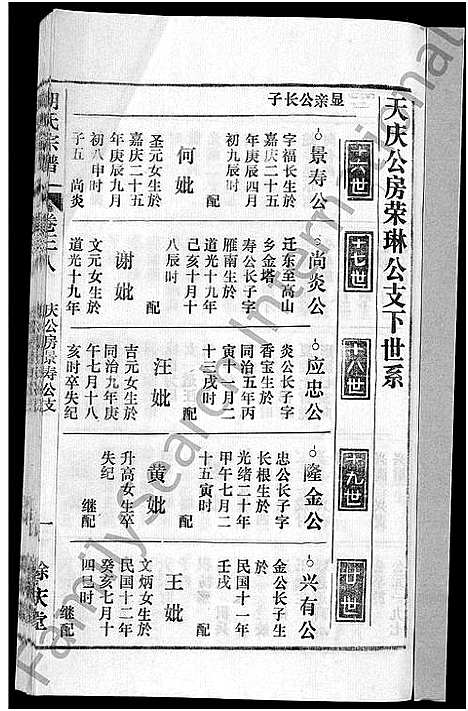 天庆公房荣琳公支下世系
十六世
十七世
十八世
十九世
廿世
显亲公长子
景寿公
字福长生於
嘉庆二十五
年庚辰四月
初九辰时
配
何妣
圣元女生於
嘉庆二十五
年庚辰九月
初八申时
子五 尚炎
尚炎公
迁东至高山
乡金塔
寿公长子字
雁南生於
道光十九年
己亥十月十
八辰时
配
谢妣
文元女生於
道光十九年
应忠公
炎公长子字
香宝生於
同治五年丙
寅十一月二
十三戌时
配
汪妣
吉元女生於
同治九年庚
午七月十八
亥时卒失纪
隆金公
忠公长子字
长根生於
光绪二十年
甲午七月二
十五寅时
配
黄妣
升高女生卒
失纪
继配
兴有公
金公长子生
於
民国十一年
壬戌
配
王妣
文炳女生於
民国十二年
癸亥七月十
四巳时
继配
氏宗谱
卷之八
庆公房景寿公支
一
馀庆堂
FamilySearch International